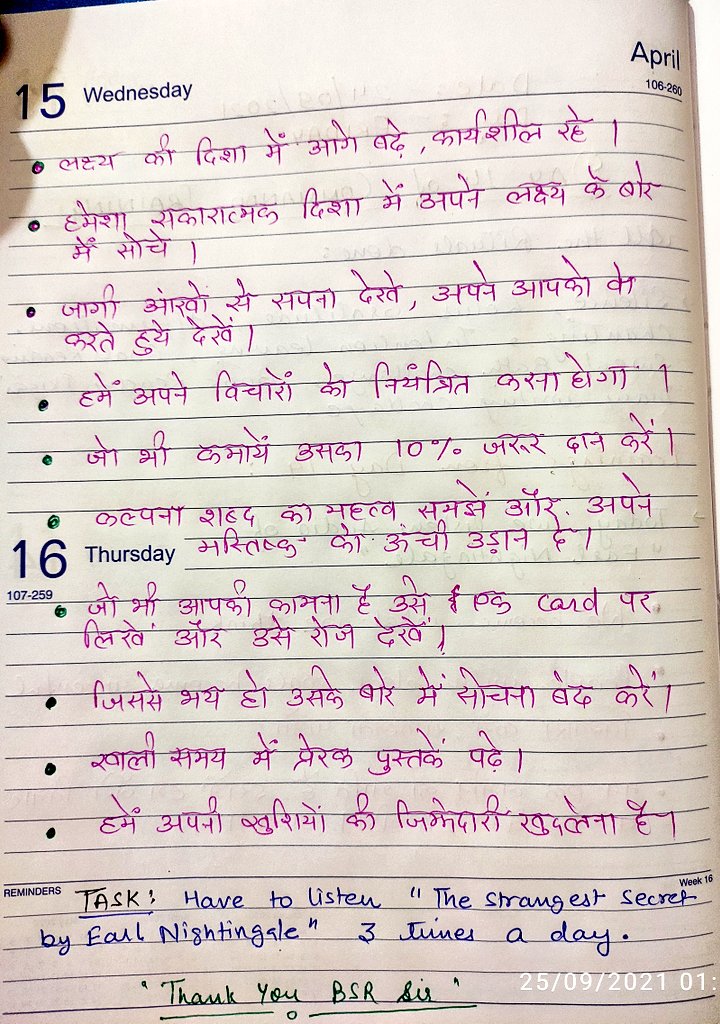 April
15 Wednesday
106-260
• लक्ष्य की दिशा में आगे बढ़े, कार्यशील रहे ।
• हमेशा सकारात्मक दिशा में अपने लक्ष्य के बारे
में सोचें ।
• जागी आंखों से सपना देखे, अपने आपको वो
करते हुये देखें ।
• हमें अपने विचारों को नियंत्रित करना होगा ।
• जो भी कमायें उसका 10% जरूर दान करें ।
• कल्पना शब्द का महत्व समझें और अपने
मस्तिष्क को ऊंची उड़ान दे ।
16 Thursday
107-259
• जो भी आपकी कामना है उसे एक Card पर
लिखें और उसे रोज देखें ।
• जिससे भय हो उसके बारे में सोचना बंद करें ।
• खाली समय में प्रेरक पुस्तकें पढ़े ।
• हमें अपनी खुशियों की जिम्मेदारी खुद लेना है ।
Week 16
REMINDERS
TASK: Have to listen "The strangest secret
by Earl Nightingale" 3 times a day.
"Thank You BSR Sir"
25/09/2021 01: